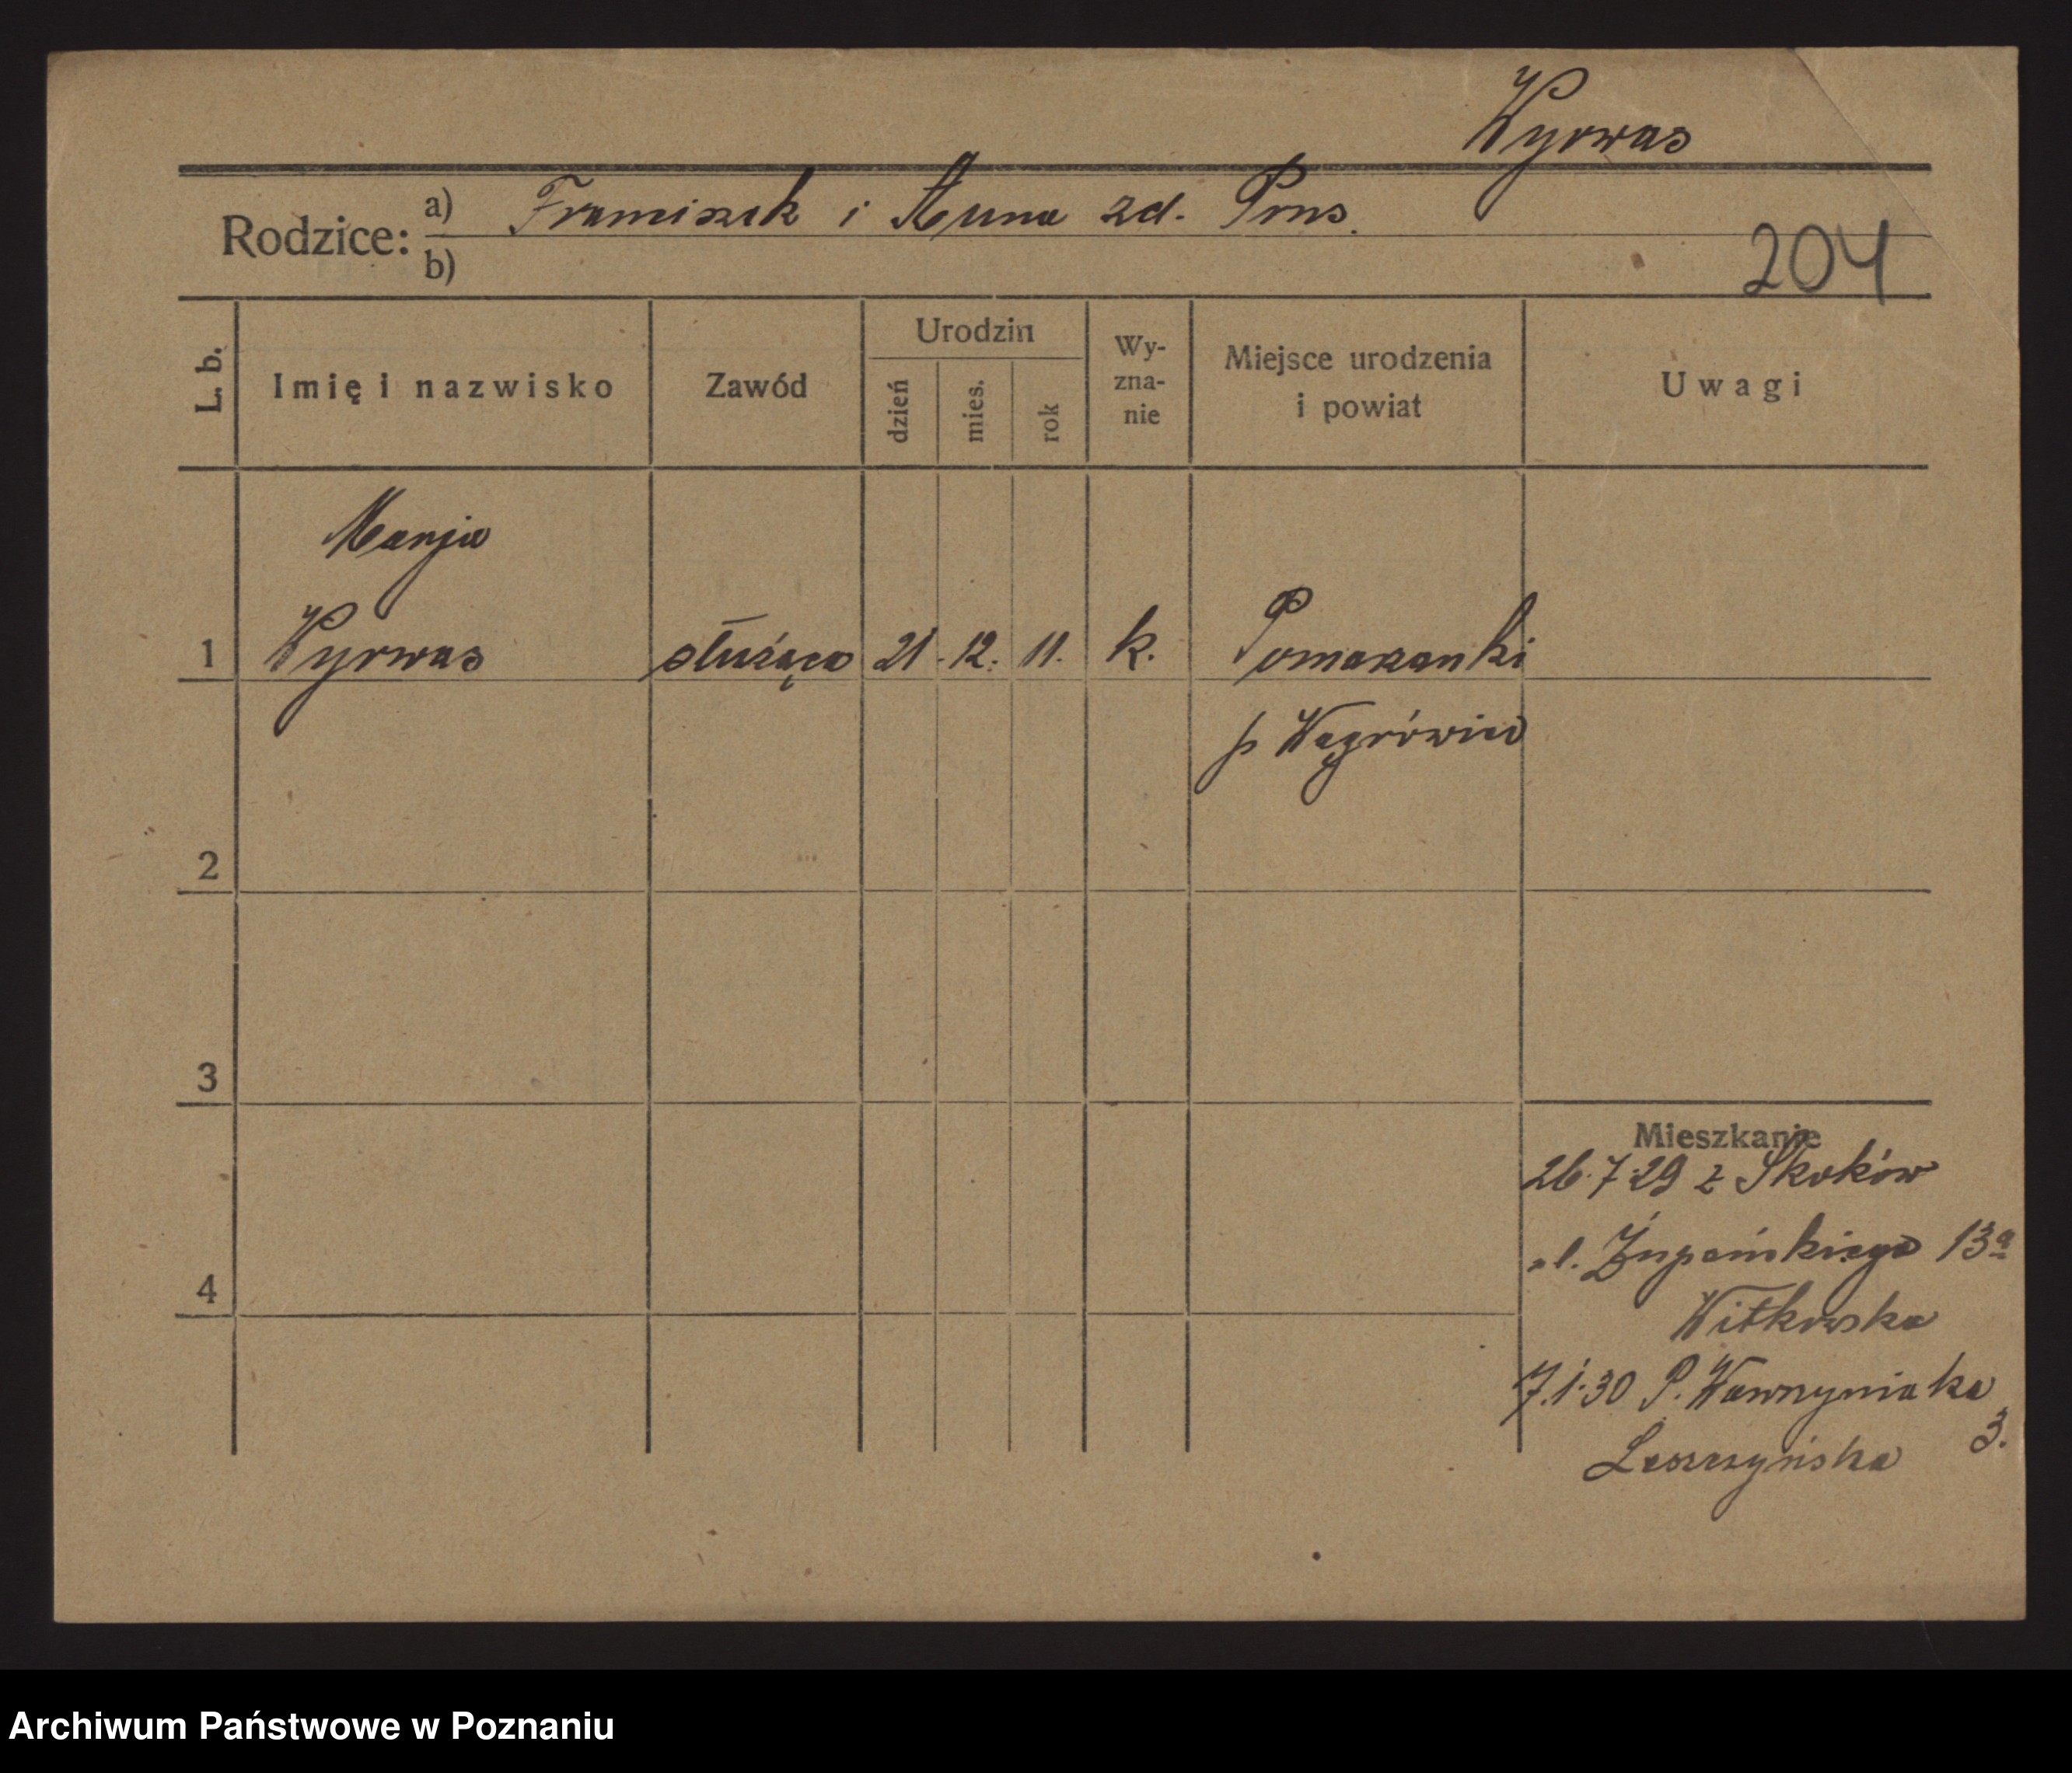 Wyrwas
Rodzice: a) Franciszek i Anna zd. Prus.
b)
204
L. b.
Imię i nazwisko
Zawód
Urodzin
dzień
mies.
rok
Wy-
zna-
nie
Miejsce urodzenia
i powiat
Uwagi
Marja
1 Wyrwas służąca 21. 12. 11. k. Pomarzanki
p Wągrówiec
2
3
4
Mieszkanie
26.7.29 z Skoków
ul. Żupańskiego 13a
Witkowska
7.1.30 P. Wawrzyniaka
3.
Leszczyńska
Archiwum Państwowe w Poznaniu